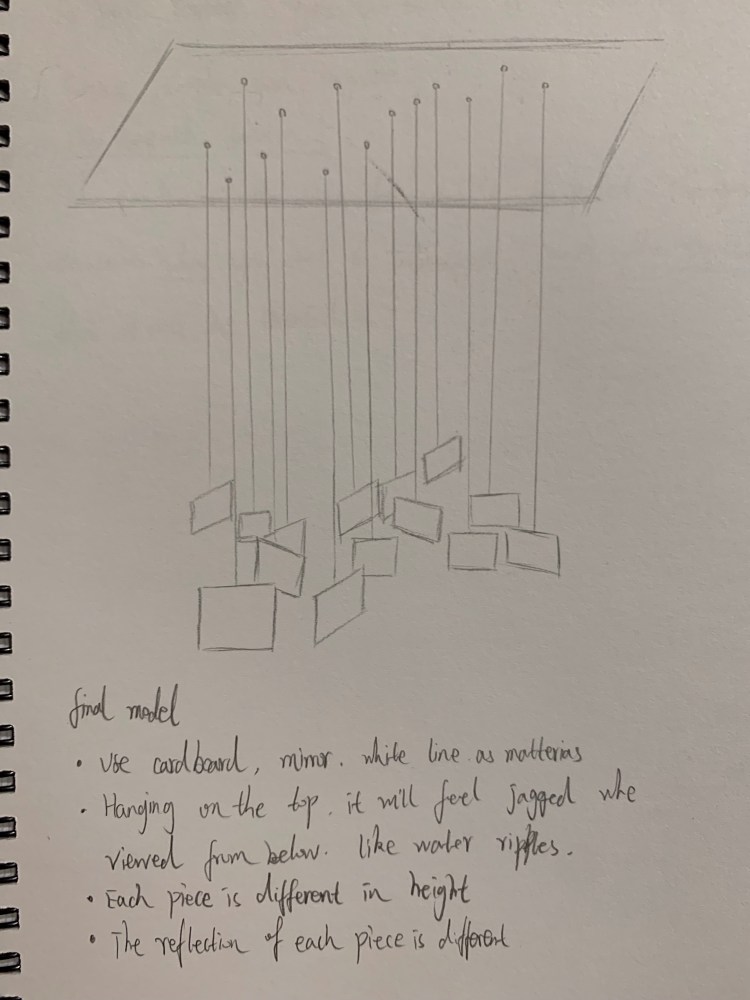 final model
• Use cardboard, mirror. white line as matterias
• Hanging on the top. it will feel jagged whe
viewed from below. like water ripples.
• Each piece is different in height
• The reflection of each piece is different